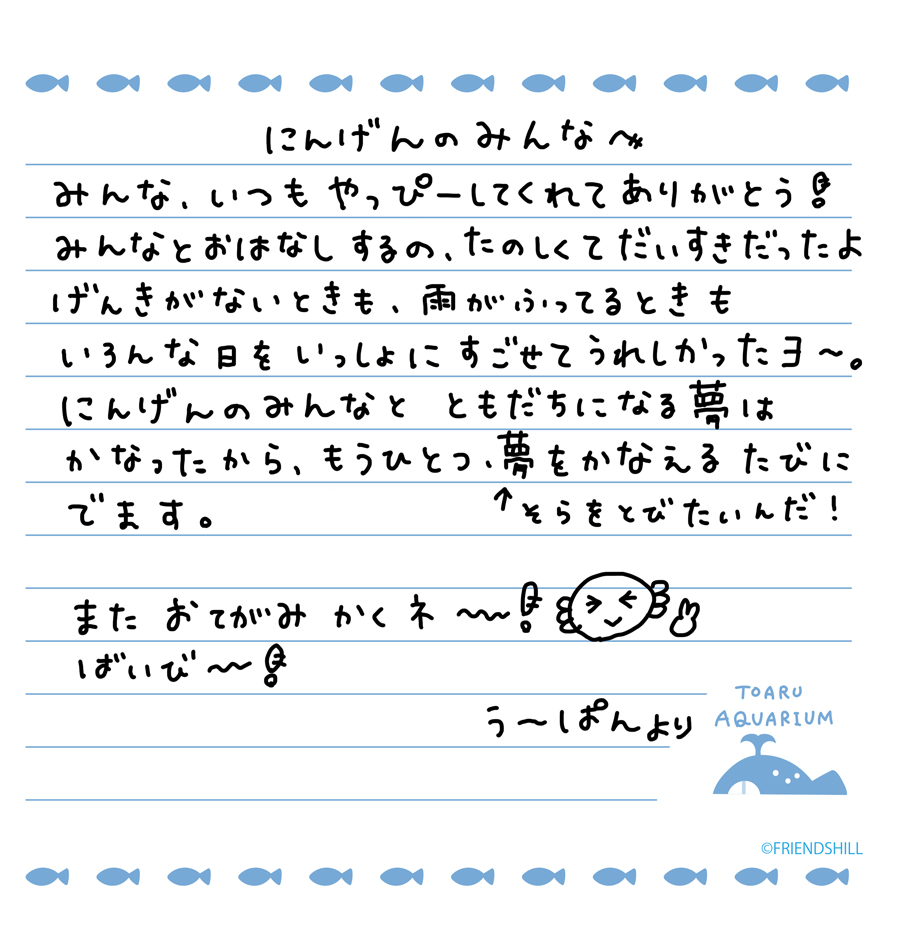 にんげんのみんな〜
みんな、いつもやっぴーしてくれてありがとう!
みんなとおはなしするの、たのしくてだいすきだったよ
げんきがないときも、雨がふってるときも
いろんな日をいっしょにすごせてうれしかったヨ〜。
にんげんのみんなと ともだちになる夢は
かなったから、もうひとつ、夢をかなえるたびに
でます。
↑そらをとびたいんだ!
また おてがみ かくネ〜〜!
ばいび〜〜!
う〜ぱんより
TOARU
AQUARIUM
©FRIENDSHILL